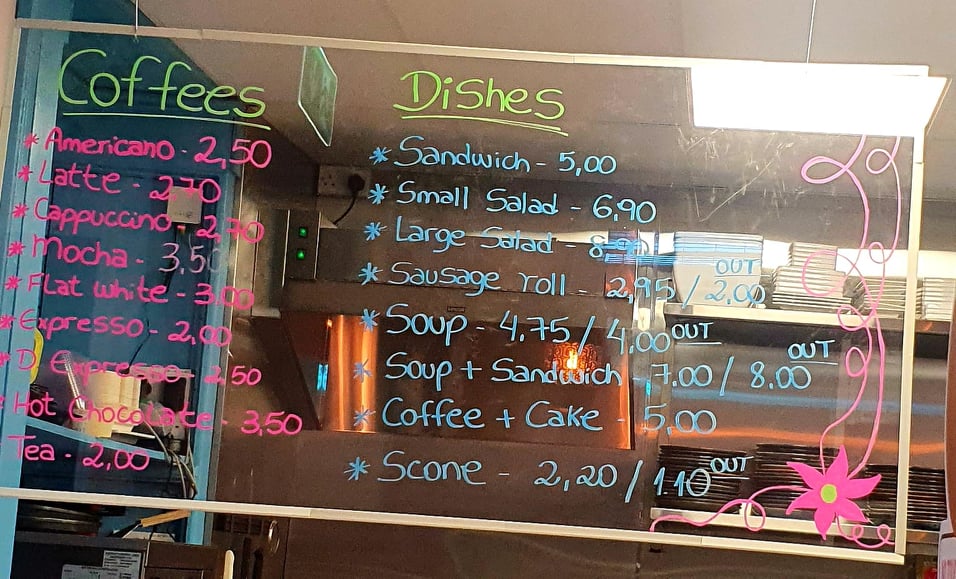 Coffees
* Americano - 2,50
* Latte - 2,70
* Cappuccino 2,70
* Mocha - 3,50
* Flat white - 3.00
* Expresso - 2,00
* D Expresso - 2.50
* Hot Chocolate - 3,50
Tea - 2,00
Dishes
* Sandwich - 5,00
* Small Salad - 6,90
* Large Salad - 8,90
* Sausage roll - 2,95 / 2,00 OUT
* Soup - 4,75 / 4,00 OUT
* Soup + Sandwich - 7.00 / 8.00 OUT
* Coffee + Cake - 5,00
* Scone - 2,20 / 1.10 OUT